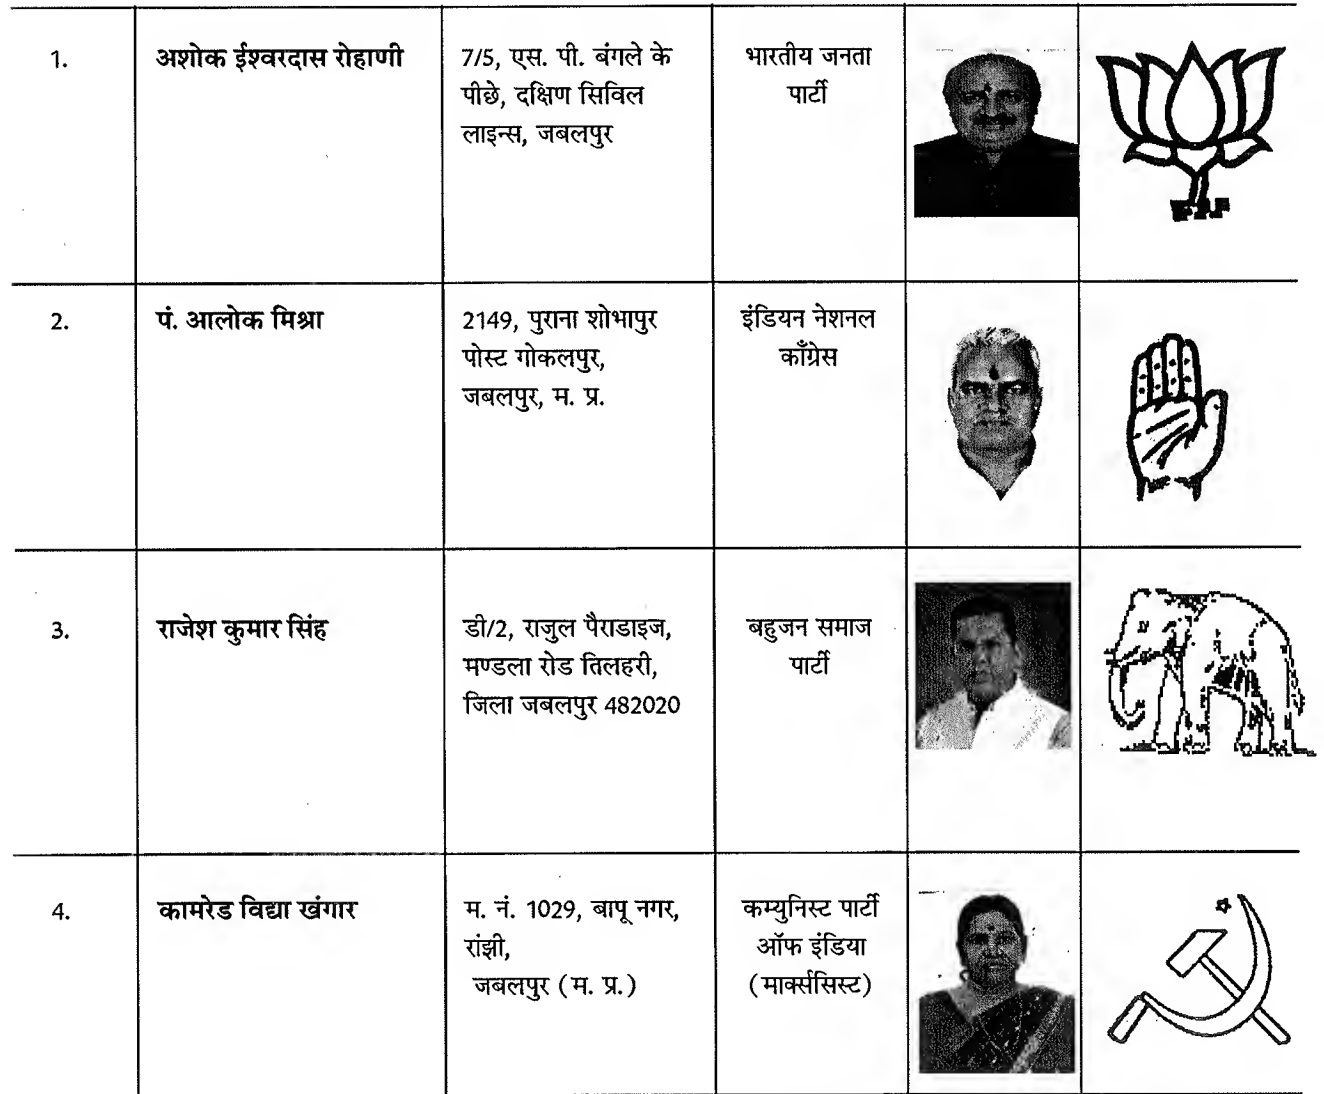 1.
अशोक ईश्वरदास रोहाणी
7/5, एस. पी. बंगले के
पीछे, दक्षिण सिविल
लाइन्स, जबलपुर
भारतीय जनता
पार्टी
2.
पं. आलोक मिश्रा
2149, पुराना शोभापुर
पोस्ट गोकलपुर,
जबलपुर, म. प्र.
इंडियन नेशनल
काँग्रेस
3.
राजेश कुमार सिंह
डी/2, राजुल पैराडाइज,
मण्डला रोड तिलहरी,
जिला जबलपुर 482020
बहुजन समाज
पार्टी
4.
कामरेड विद्या खंगार
म. नं. 1029, बापू नगर,
रांझी,
जबलपुर (म. प्र.)
कम्युनिस्ट पार्टी
ऑफ इंडिया
(मार्क्ससिस्ट)